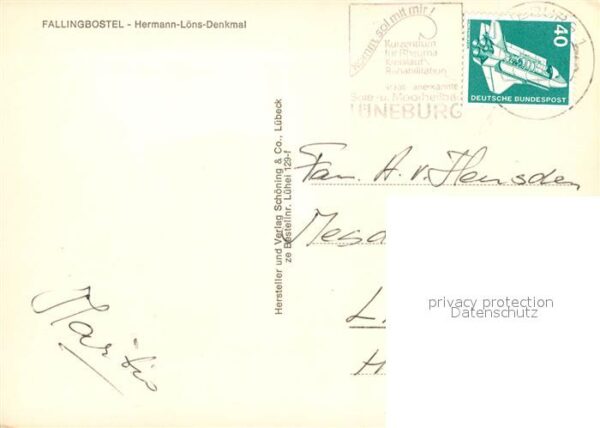 FALLINGBOSTEL - Hermann-Löns-Denkmal
komm, sol mit mir!
Kurzentrum
für Rheuma
Kreislauf
Rehabilitation
staatl. anerkanntes
Sole- u. Moorheilbad
LÜNEBURG
40
DEUTSCHE BUNDESPOST
Hersteller und Verlag Schöning & Co., Lübeck
ze Bestellnr. Lühei 129-f
Fam. A. v. Heusden
Mesd
L
H
privacy protection
Datenschutz